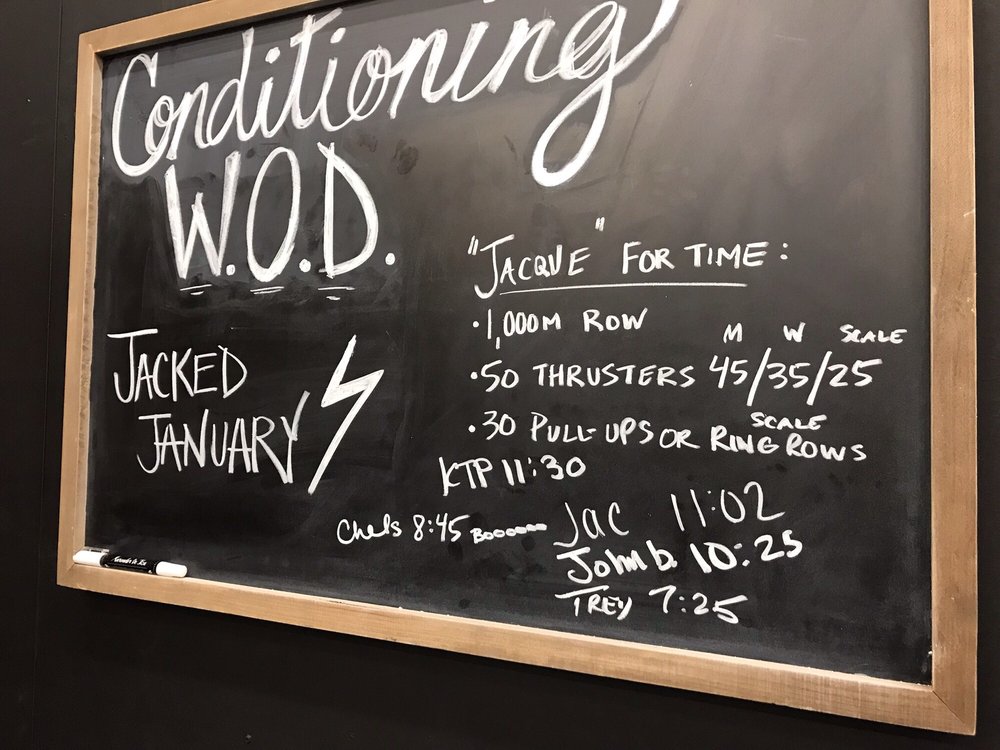 Conditioning
W.O.D.
JACKED
JANUARY
"JACQUE" FOR TIME:
• 1,000M ROW
M W SCALE
• 50 THRUSTERS 45/35/25
SCALE
• 30 PULL-UPS OR RING ROWS
KTP 11:30
Chels 8:45 Booooooo
Jac 11:02
John b. 10:25
TREY 7:25